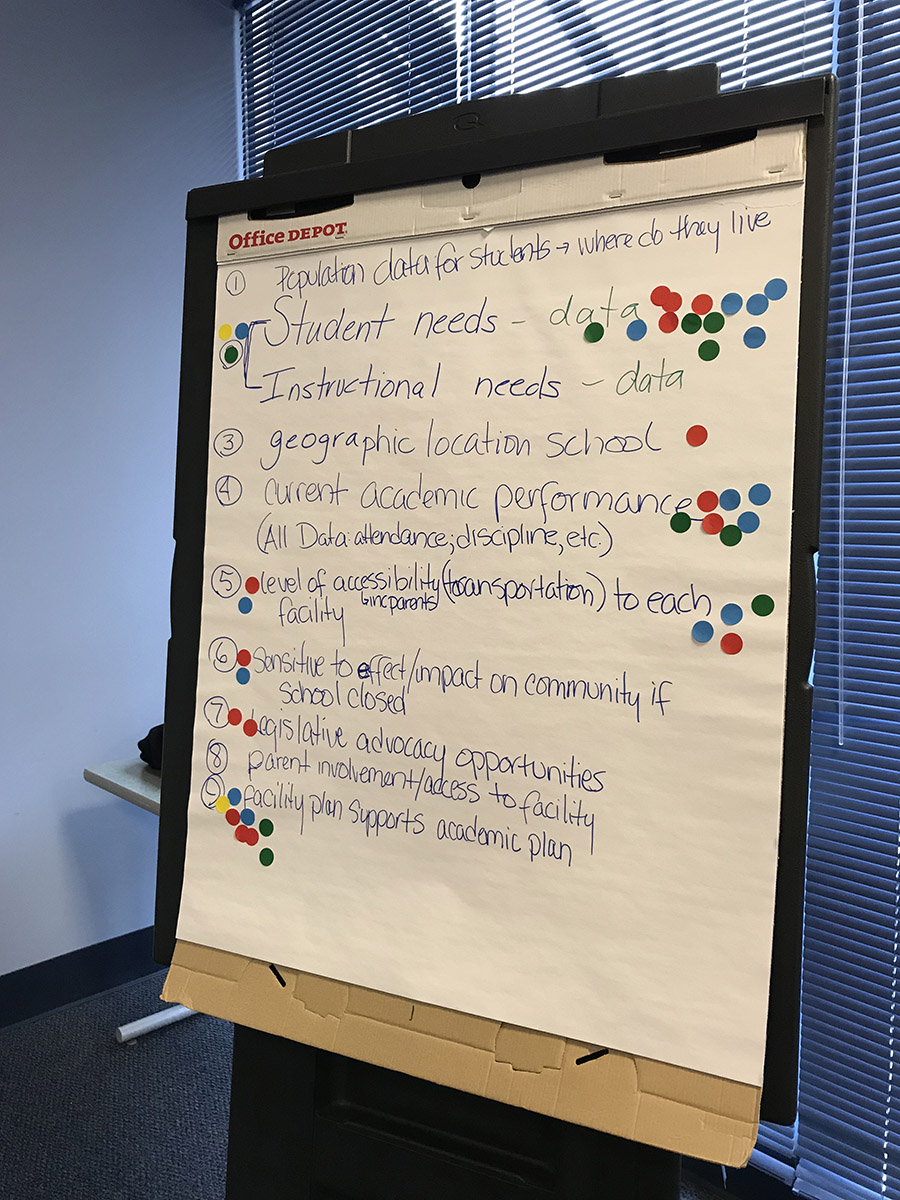 Office DEPOT
① Population data for students → where do they live
Student needs - data
Instructional needs - data
③ geographic location school
④ current academic performance
(All Data: attendance, discipline, etc.)
⑤ level of accessibility (transportation) to each
facility inc parents
⑥ Sensitive to effect/impact on community if
school closed
⑦ Legislative advocacy opportunities
⑧ parent involvement/access to facility
⑨ facility plan supports academic plan